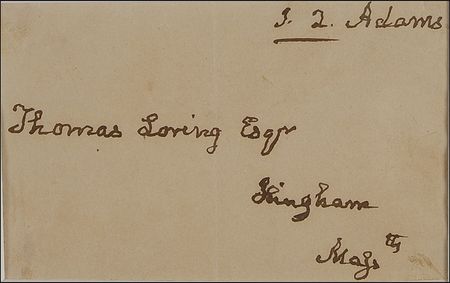 J. Q. Adams
Thomas Loring Esqr
Hingham
Mass tts